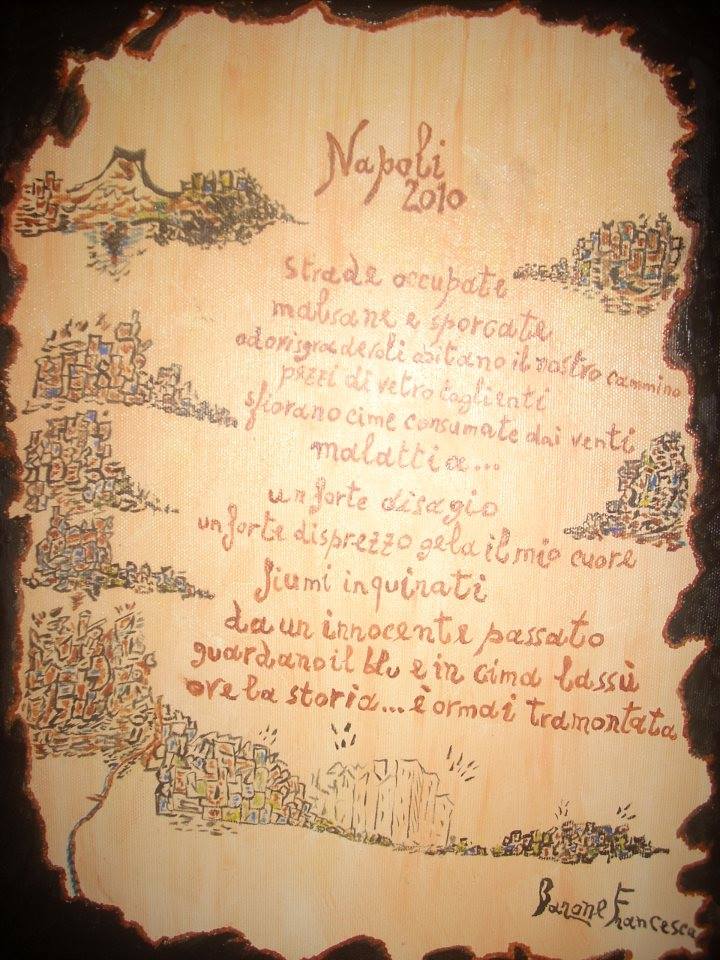 Napoli
2010
strade occupate
malsane e sporcate
odori sgradevoli abitano il nostro cammino
pezzi di vetro taglienti
sfiorano cime consumate dai venti
malattia...
un forte disagio
un forte disprezzo gela il mio cuore
fiumi inquinati
da un innocente passato
guardano il blu e in cima lassù
ove la storia... è ormai tramontata
Barone Francesca